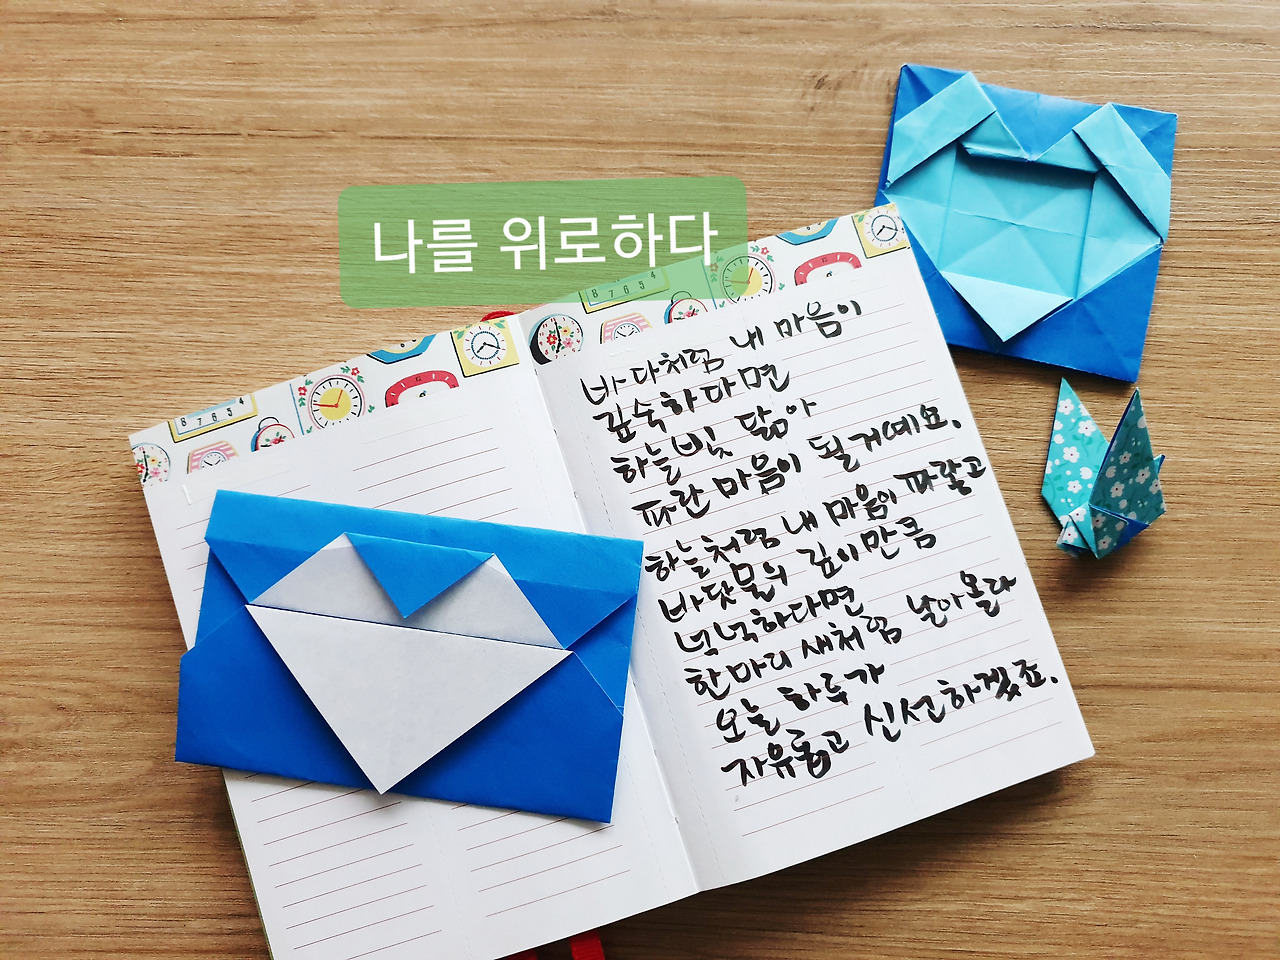 나를 위로하다
8 7 6 5 4
8 7 6 5 4
바다처럼 내 마음이
깊숙하다면
하늘빛 닮아
파란 마음이 될거예요.
하늘처럼 내 마음이 파랗고
바닷물의 깊이만큼
넉넉하다면
한마리 새처럼 날아올라
오늘 하루가
자유롭고 신선하겠죠.